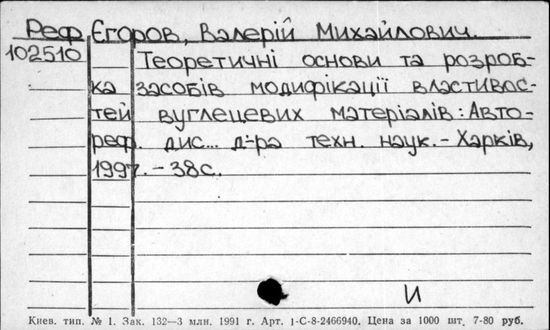 Реф Єгоров, Валерій Михайлович.
102510 Теоретичні основи та розроб-
ка засобів модифікації властивос-
тей вуглецевих матеріалів: Авто-
реф. дис... д-ра техн. наук. - Харків,
1997. - 38с.
И
Киев. тип. № 1. Зак. 132—3 млн. 1991 г. Арт. 1-С-8-2466940. Цена за 1000 шт. 7-80 руб.